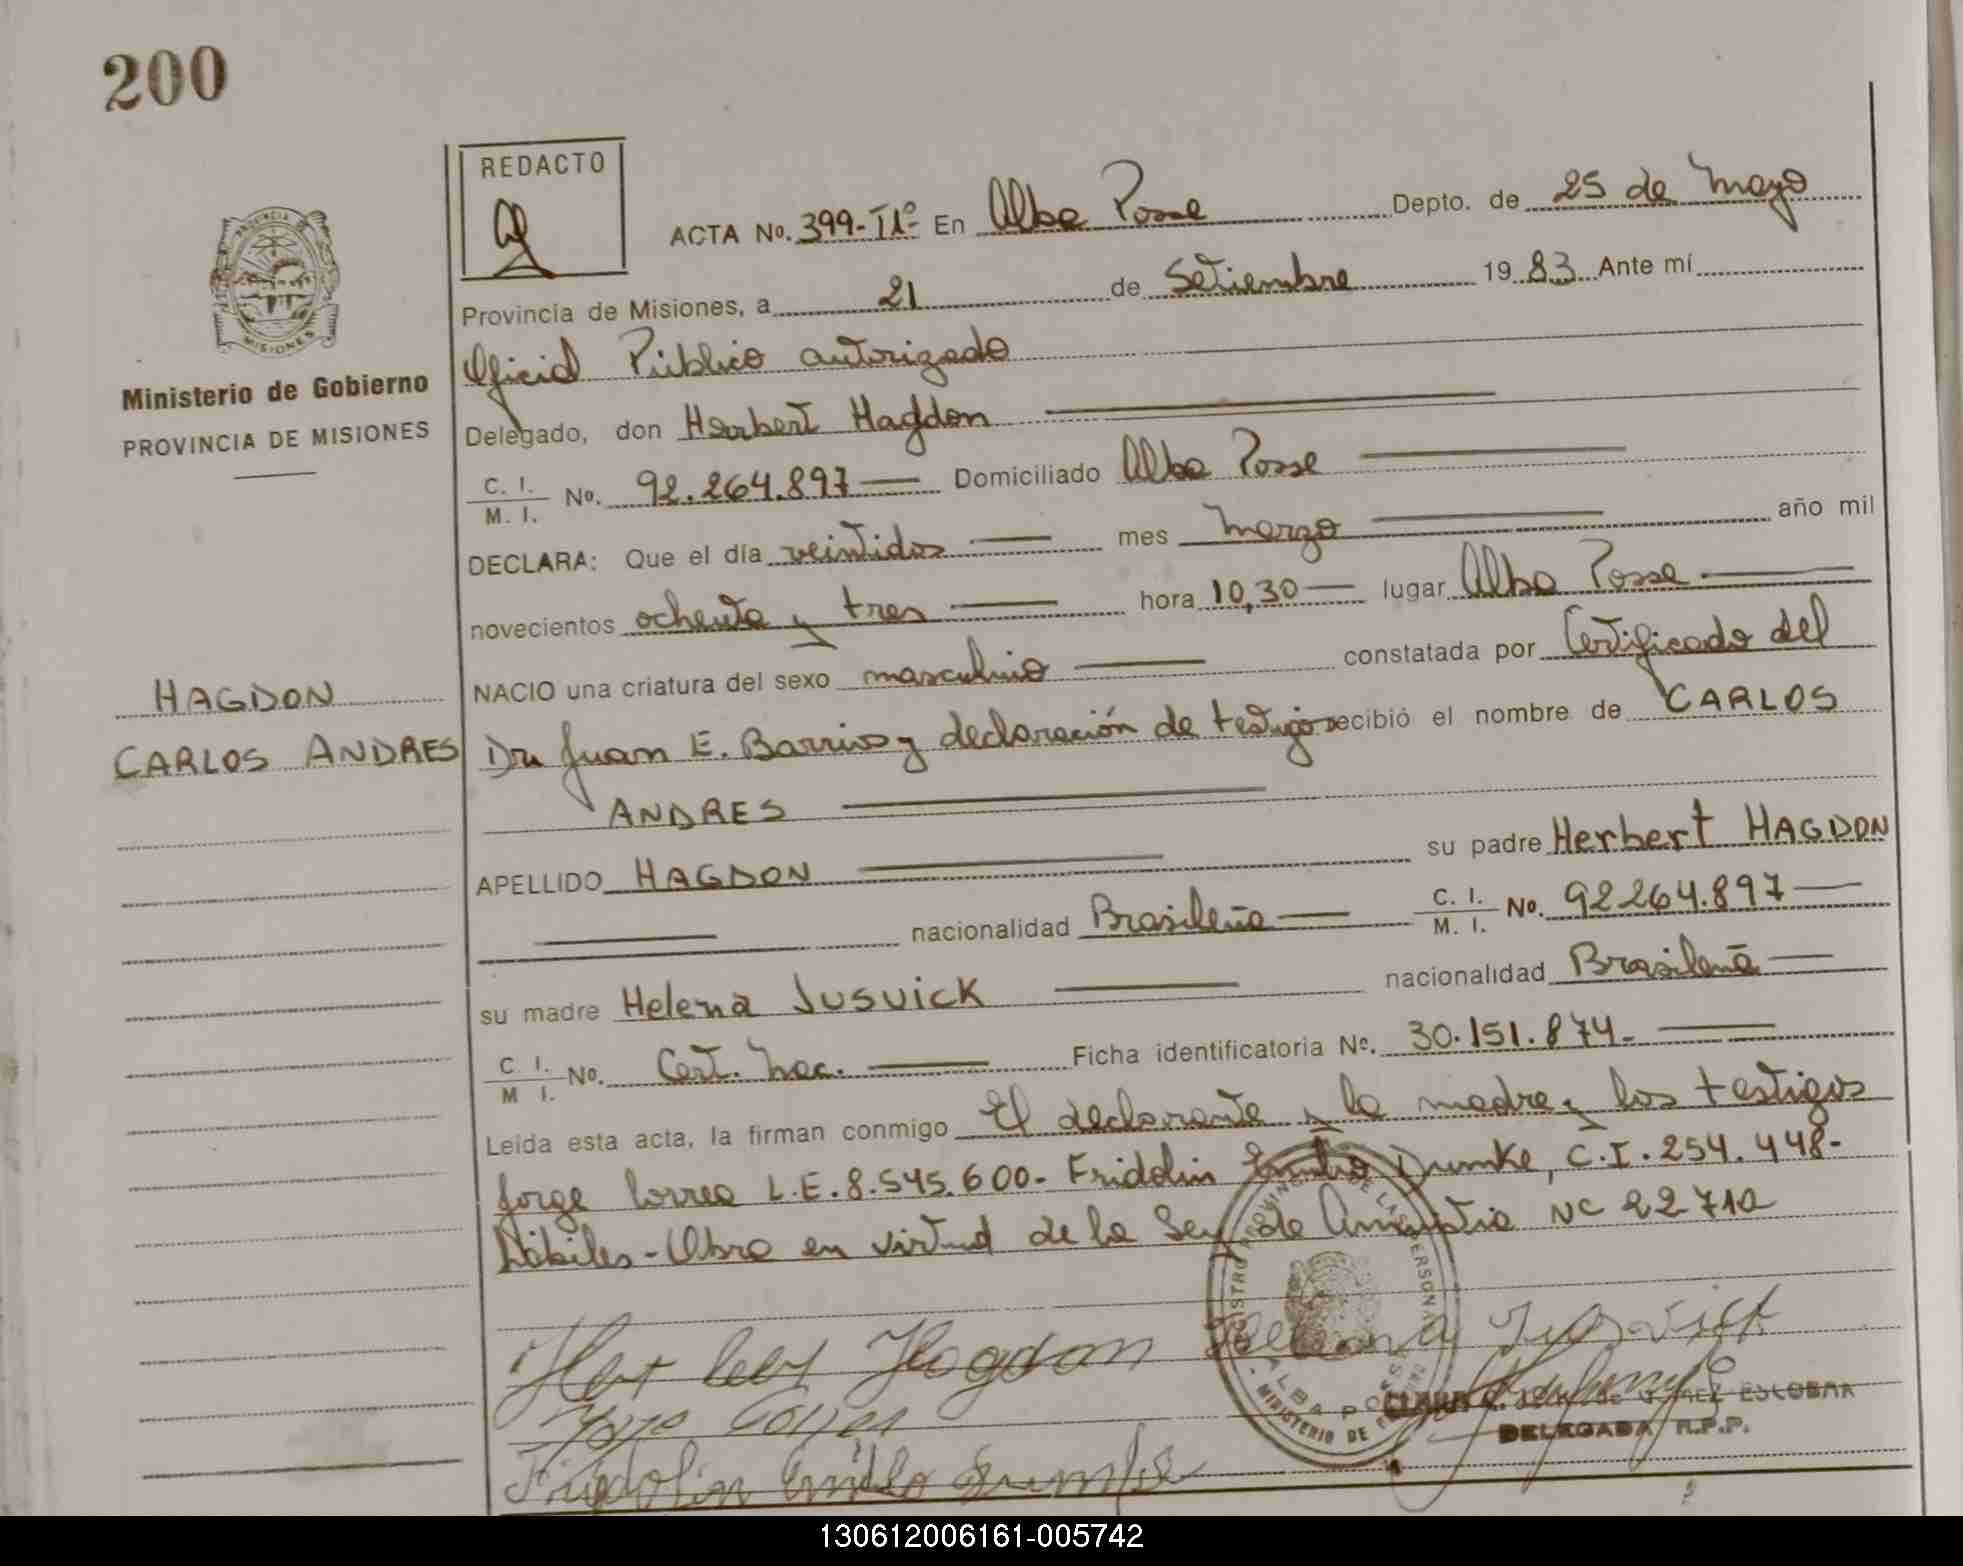 200
REDACTO
ACTA No. 399-II°- En Alba Posse Depto. de 25 de Mayo
Provincia de Misiones, a 21 de Setiembre 19 83 Ante mí
Oficial Público autorizado
Ministerio de Gobierno
PROVINCIA DE MISIONES
MISIONES
Delegado, don Herbert Hagdon
C. I. / M. I. No. 92.264.897 — Domiciliado Alba Posse
DECLARA: Que el día veintidos mes Marzo año mil
novecientos ochenta y tres hora 10,30 — lugar Alba Posse
NACIO una criatura del sexo masculino constatada por Certificado del
HAGDON
CARLOS ANDRES
Dr Juan E. Barrios y declaración de testigos recibió el nombre de CARLOS
ANDRES
APELLIDO HAGDON su padre Herbert HAGDON
nacionalidad Brasileña — C. I. / M. I. No. 92264.897 —
su madre Helena JUSVICK nacionalidad Brasileña —
C. I. / M I. No. Cert. Nac. — Ficha identificatoria No. 30.151.874.-
Leida esta acta, la firman conmigo El declarante y la madre y los testigos
Jorge Correa L.E.8.545.600- Fridolin Emilio Drumke, C.I.254.448-
Hábiles-Obra en virtud de la Ley de Amnistia Nº 22712
Herbert Hagdon Helena Jusvick
ALBA POSSE
MINISTERIO DE
ESCOBAR
DELEGADA R.P.P.
Jorge Correa
Fridolin Emilio Drumke
130612006161-005742